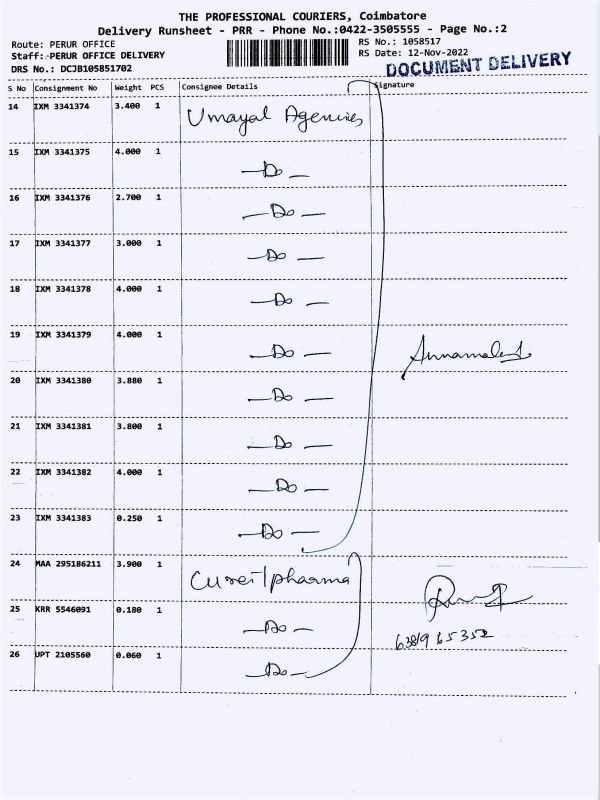 THE PROFESSIONAL COURIERS, Coimbatore
Delivery Runsheet - PRR - Phone No.:0422-3505555 - Page No.:2
Route: PERUR OFFICE
RS No.: 1058517
Staff: PERUR OFFICE DELIVERY
RS Date: 12-Nov-2022
DRS No.: DCJB105851702
DOCUMENT DELIVERY
S No Consignment No Weight PCS Consignee Details Signature
14 IXM 3341374 3.400 1 Umayal Agencies
15 IXM 3341375 4.000 1 —Do—
16 IXM 3341376 2.700 1 —Do—
17 IXM 3341377 3.000 1 —Do—
18 IXM 3341378 4.000 1 —Do—
19 IXM 3341379 4.000 1 —Do—
20 IXM 3341380 3.880 1 —Do—
21 IXM 3341381 3.800 1 —Do—
22 IXM 3341382 4.000 1 —Do—
23 IXM 3341383 0.250 1 —Do—
24 MAA 295186211 3.900 1 pharma
25 KRR 5546091 0.180 1 —Do—
26 UPT 2105560 0.060 1 —Do—